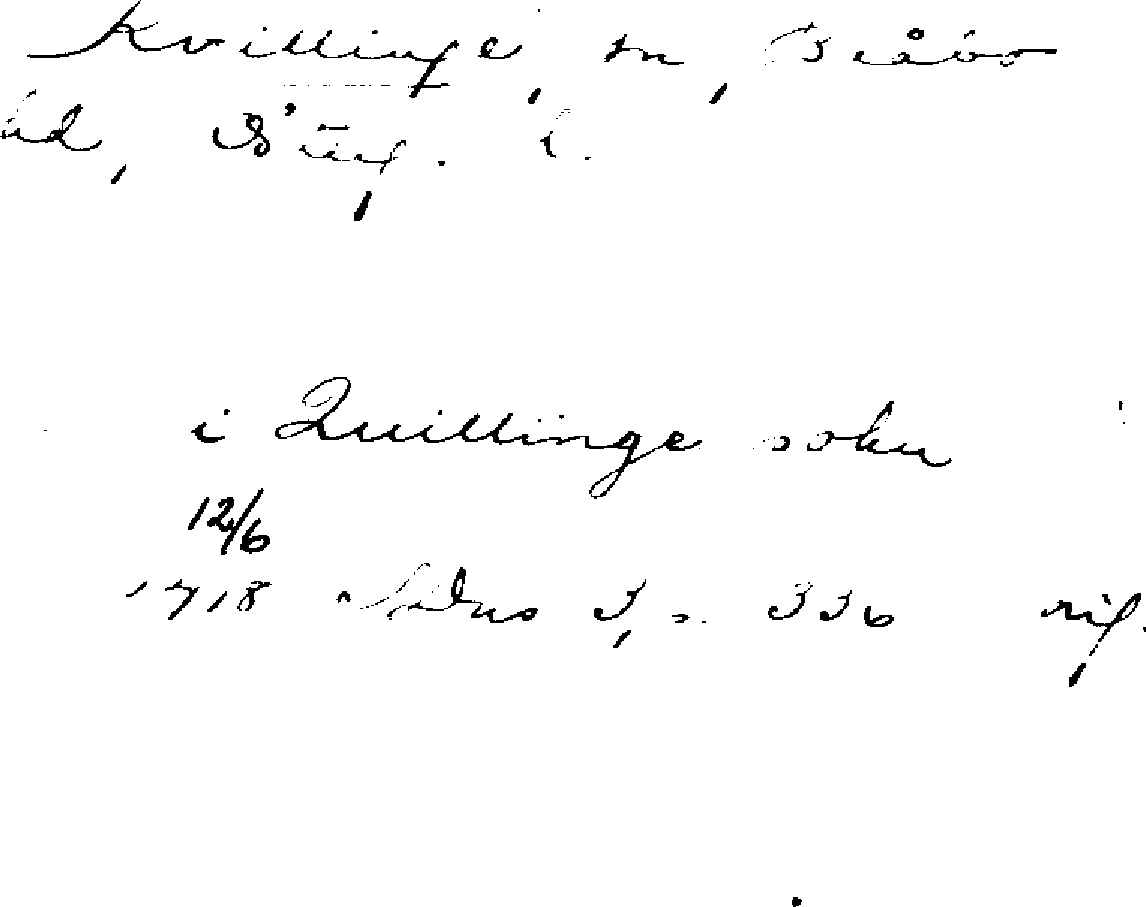 Kvillinge, sn, Bråbo
hd, Östg. l.
i Quillinge sokn
12/6
1718 3, s. 336 rig.